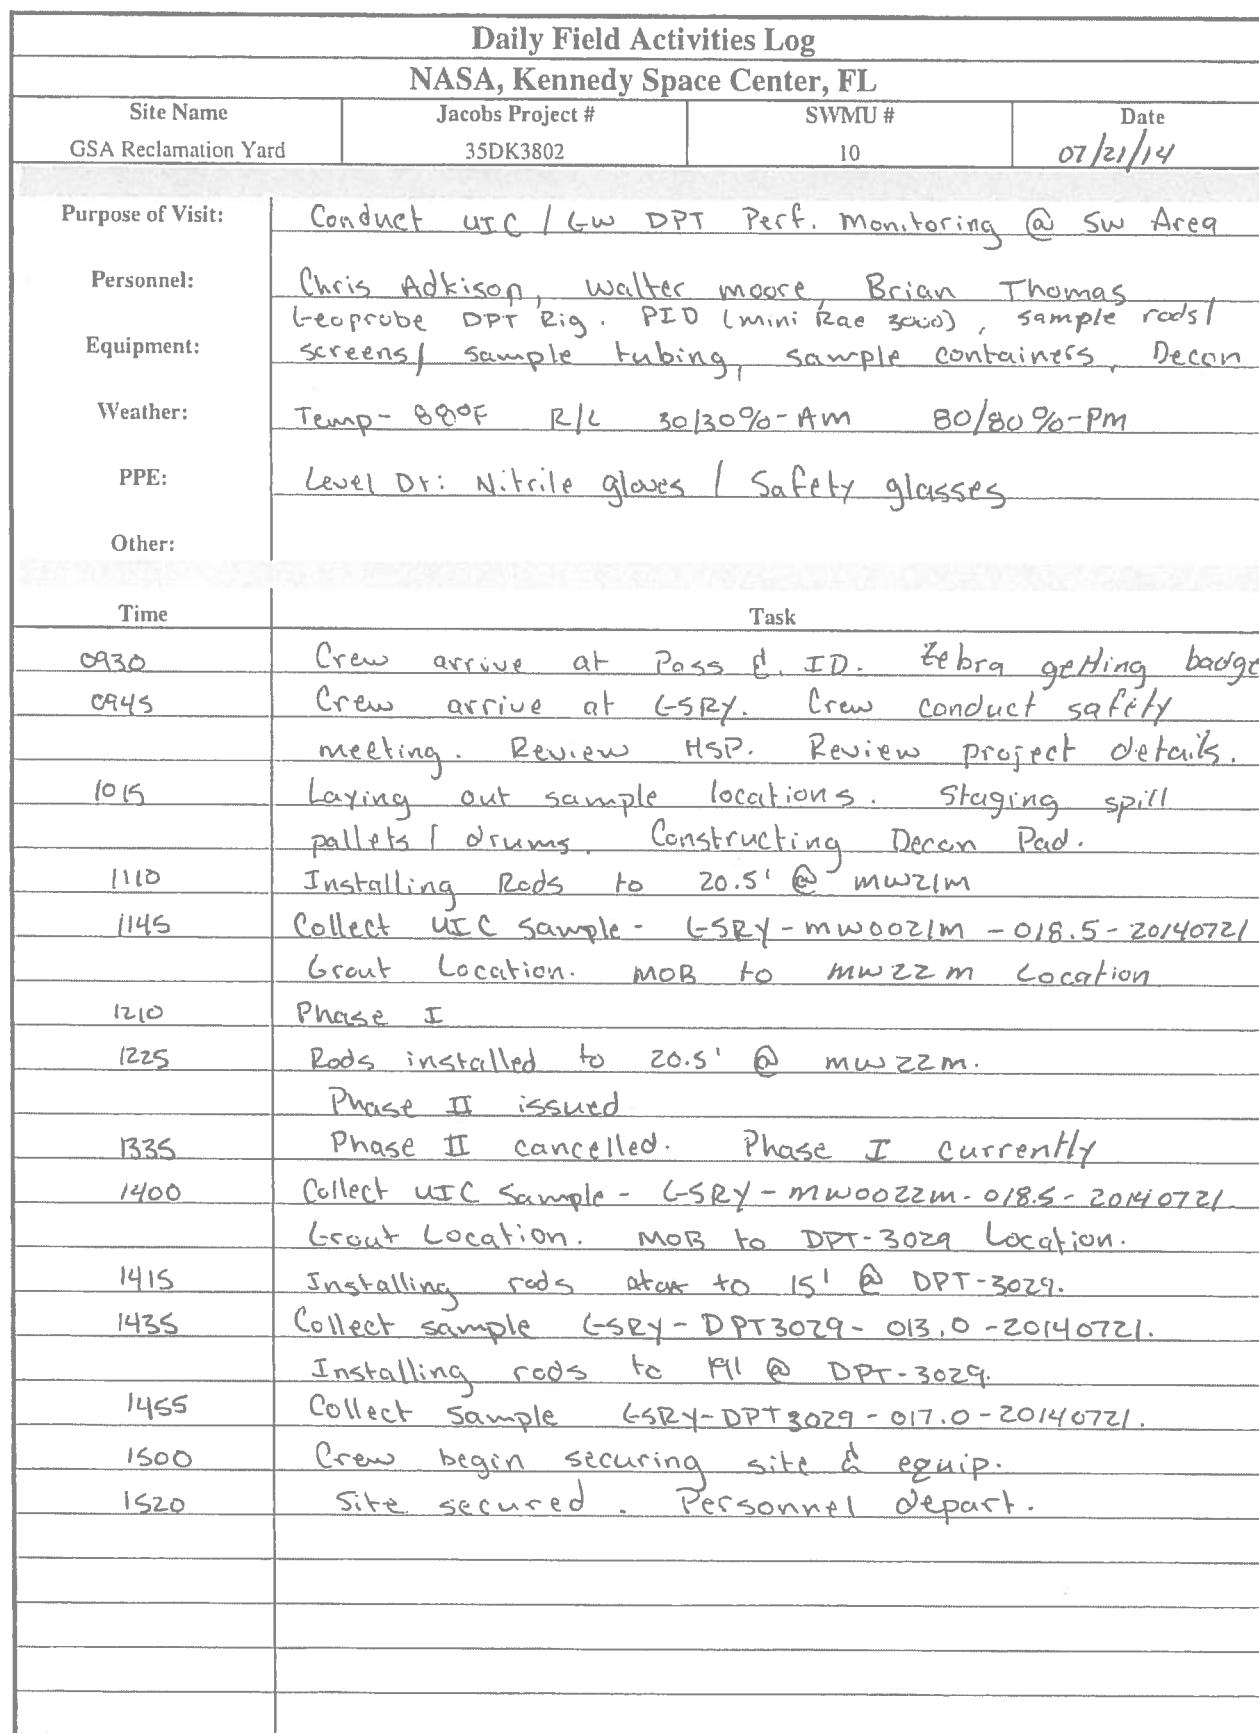 Daily Field Activities Log
NASA, Kennedy Space Center, FL
Site Name Jacobs Project # SWMU # Date
GSA Reclamation Yard 35DK3802 10 07/21/14
Purpose of Visit: Conduct UIC / GW DPT Perf. Monitoring @ SW Area
Personnel: Chris Adkison, Walter Moore, Brian Thomas
Geoprobe DPT Rig. PID (mini Rae 3000), sample rods/
Equipment: screens/ sample tubing, sample containers, Decon
Weather: Temp- 88°F R/L 30/30%-AM 80/80%-PM
PPE: Level D: Nitrile gloves / Safety glasses
Other:
Time Task
0930 Crew arrive at Pass & ID. Zebra getting badge
0945 Crew arrive at GSRY. Crew conduct safety
meeting. Review HSP. Review project details.
1015 Laying out sample locations. Staging spill
pallets / drums. Constructing Decon Pad.
1110 Installing Rods to 20.5' @ MW21M
1145 Collect UIC Sample - GSRY-MW0021M-018.5-20140721
Grout Location. MOB to MW22M Location
1210 Phase I
1225 Rods installed to 20.5' @ MW22M.
Phase II issued
1335 Phase II cancelled. Phase I currently
1400 Collect UIC Sample - GSRY-MW0022M-018.5-20140721
Grout Location. MOB to DPT-3029 Location.
1415 Installing rods to 15' @ DPT-3029.
1435 Collect sample GSRY-DPT3029-013.0-20140721.
Installing rods to 19' @ DPT-3029.
1455 Collect Sample GSRY-DPT3029-017.0-20140721.
1500 Crew begin securing site & equip.
1520 Site secured. Personnel depart.